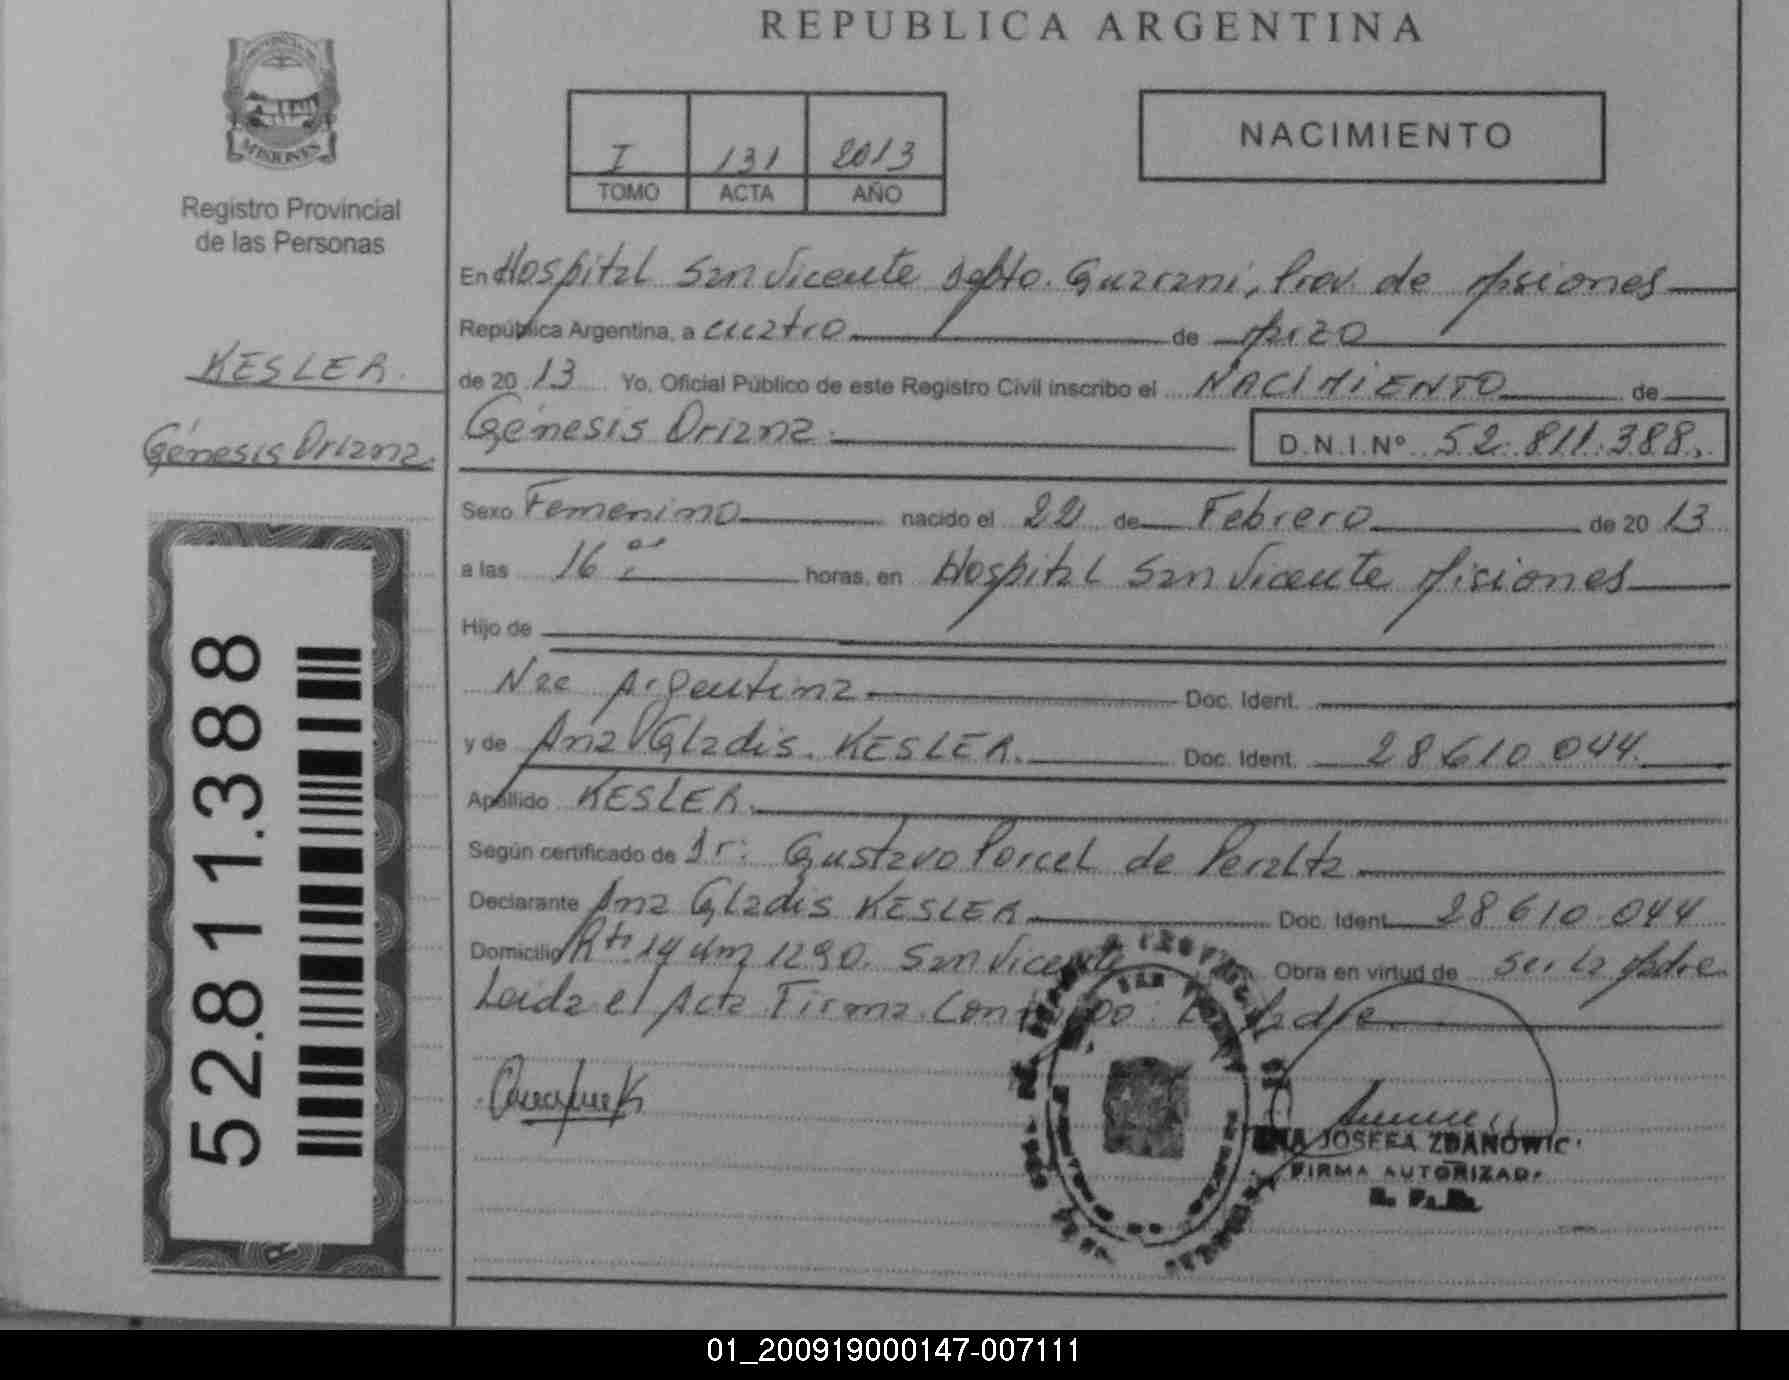 REPUBLICA ARGENTINA
PROVINCIA DE
MISIONES
Registro Provincial
de las Personas
I 131 2013
TOMO ACTA AÑO
NACIMIENTO
En Hospital San Vicente Depto. Guarani, Prov. de Misiones
República Argentina, a cuatro de Marzo
KESLER.
de 20 13 Yo, Oficial Público de este Registro Civil inscribo el NACIMIENTO de
Génesis Oriana.
Génesis Oriana. D.N.I.Nº 52.811.388.
Sexo Femenino nacido el 22 de Febrero de 20 13
a las 16 horas, en Hospital San Vicente Misiones
Hijo de
Nac Argentina Doc. Ident.
y de Ana Gladis. KESLER. Doc. Ident. 28.610.044.
Apellido KESLER.
Según certificado de Dr: Gustavo Porcel de Peralta
Declarante Ana Gladis KESLER Doc. Ident. 28.610.044
Domicilio Rta 14 Km 1290. San Vicente Obra en virtud de ser la Madre
Leida el Acta Firma Con La Madre
JOSEFA ZDANOWIC
FIRMA AUTORIZAD
52.811.388
01_200919000147-007111